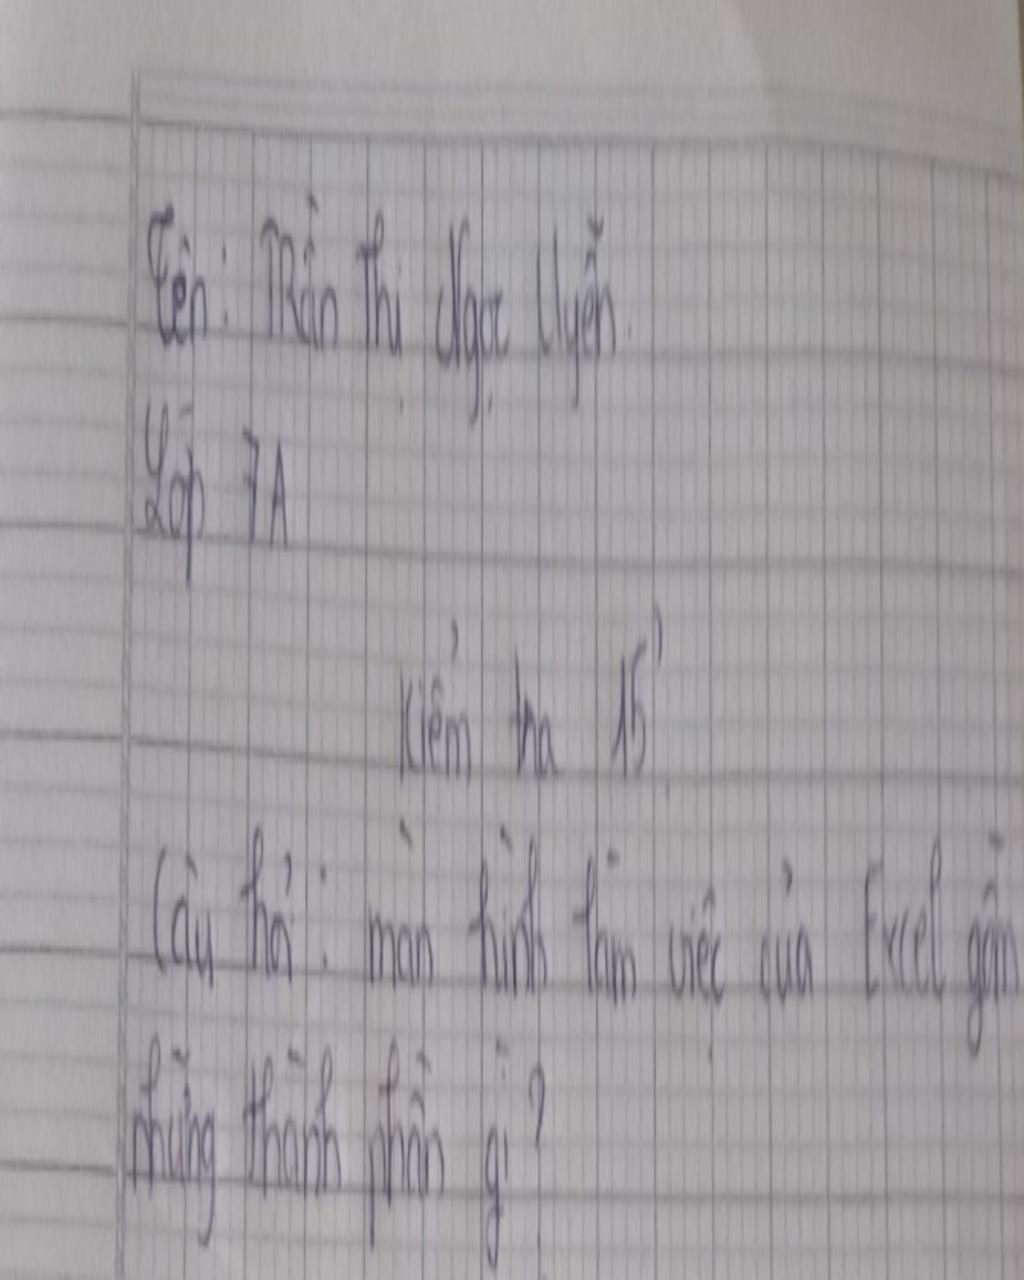 Tên: Trần Thị Ngọc Uyển.
Lớp 7A
Kiểm tra 15'
Câu hỏi: màn hình làm việc của Excel gồm
những thành phần gì?